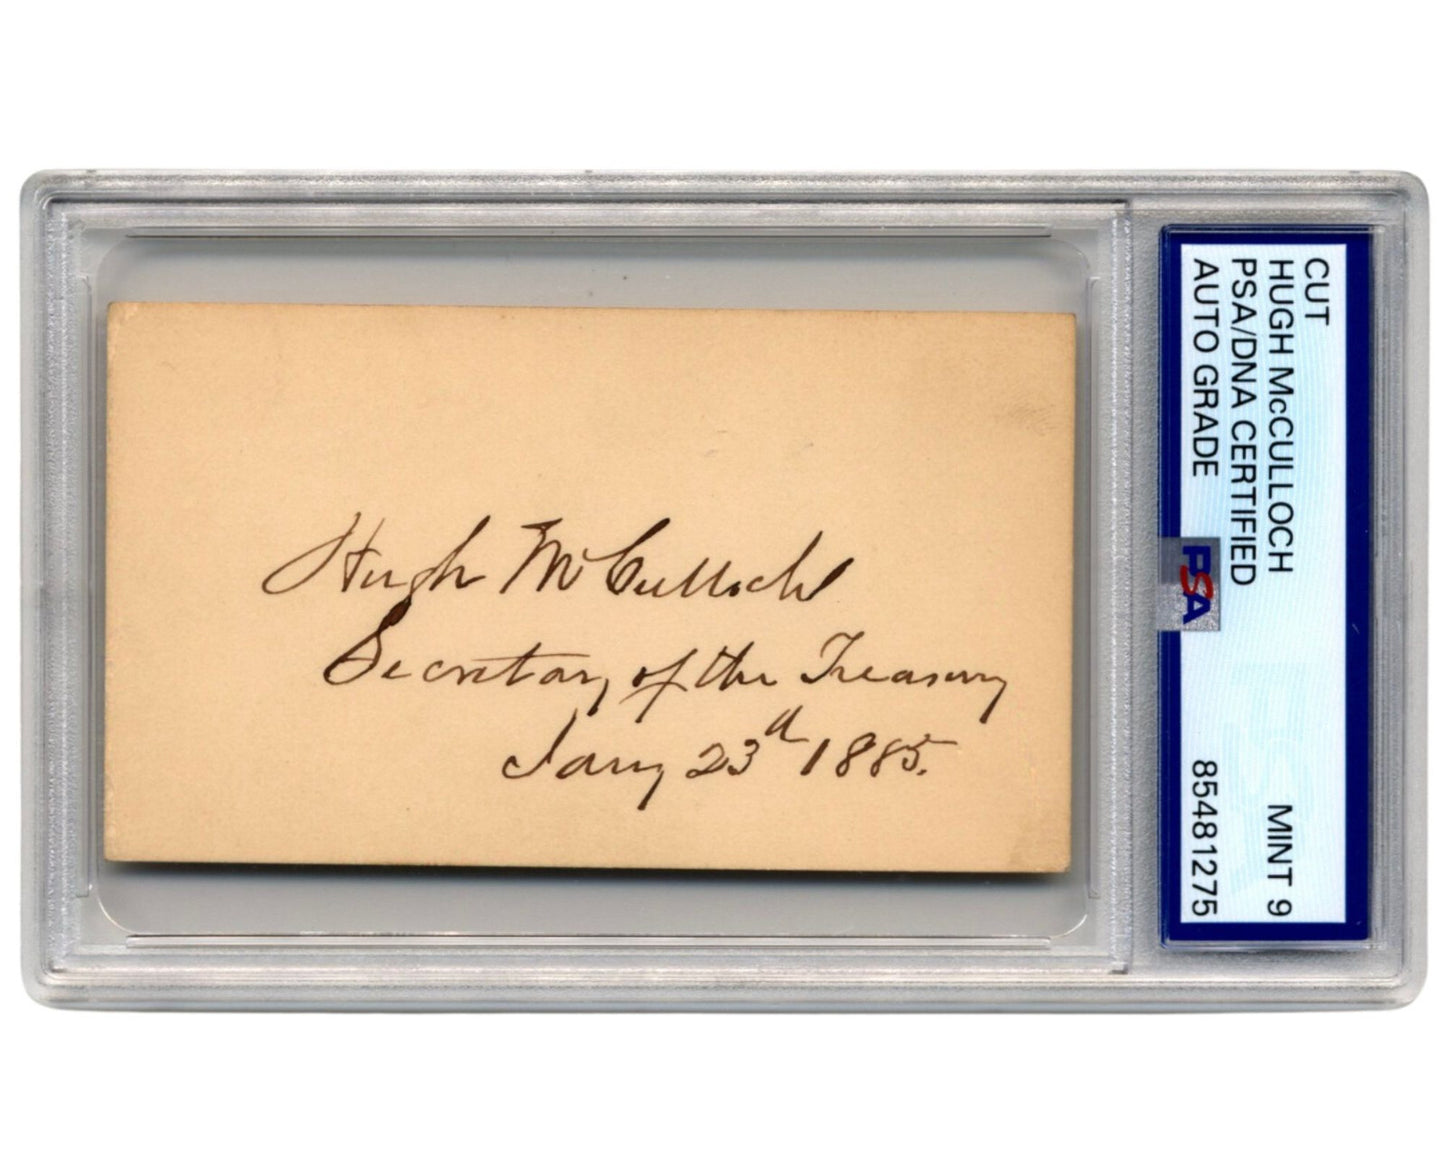 Hugh McCulloch
Secretary of the Treasury
Jany 23d 1885.
CUT
HUGH McCULLOCH MINT 9
PSA/DNA CERTIFIED
AUTO GRADE 85481275
PSA